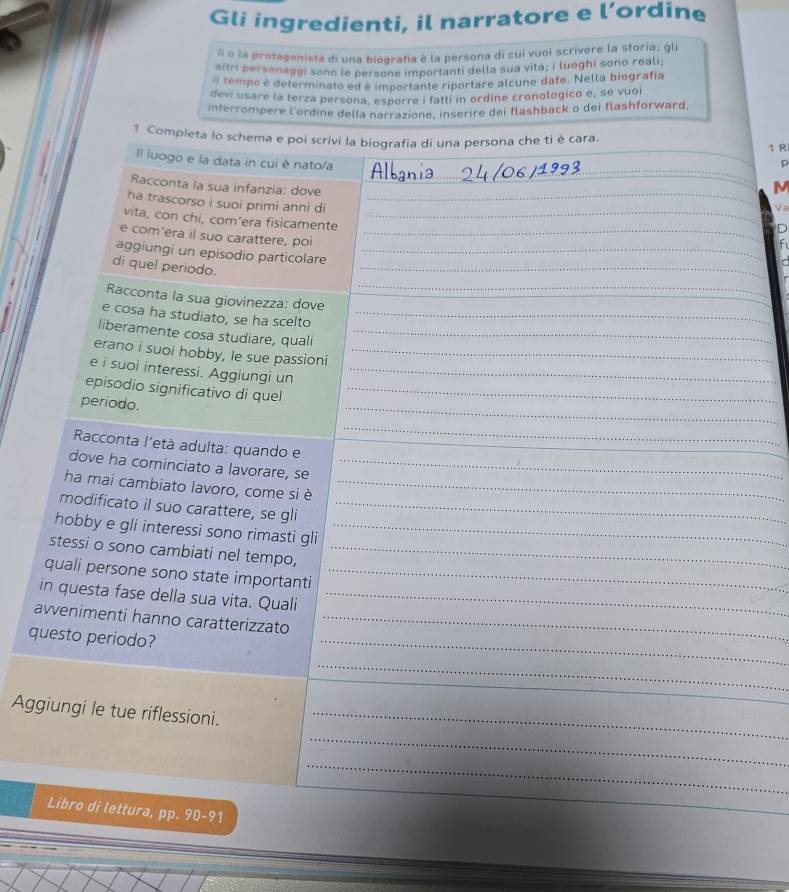 Gli ingredienti, il narratore e l'ordine
Il o la protagonista di una biografia è la persona di cui vuoi scrivere la storia; gli
altri personaggi sono le persone importanti della sua vita; i luoghi sono reali;
il tempo è determinato ed è importante riportare alcune date. Nella biografia
devi usare la terza persona, esporre i fatti in ordine cronologico e, se vuoi
interrompere l'ordine della narrazione, inserire dei flashback o dei flashforward.
1 Completa lo schema e poi scrivi la biografia di una persona che ti è cara.
Il luogo e la data in cui è nato/a
Albania 24/06/1993
Racconta la sua infanzia: dove
ha trascorso i suoi primi anni di
vita, con chi, com'era fisicamente
e com'era il suo carattere, poi
aggiungi un episodio particolare
di quel periodo.
Racconta la sua giovinezza: dove
e cosa ha studiato, se ha scelto
liberamente cosa studiare, quali
erano i suoi hobby, le sue passioni
e i suoi interessi. Aggiungi un
episodio significativo di quel
periodo.
Racconta l'età adulta: quando e
dove ha cominciato a lavorare, se
ha mai cambiato lavoro, come si è
modificato il suo carattere, se gli
hobby e gli interessi sono rimasti gli
stessi o sono cambiati nel tempo,
quali persone sono state importanti
in questa fase della sua vita. Quali
avvenimenti hanno caratterizzato
questo periodo?
Aggiungi le tue riflessioni.
Libro di lettura, pp. 90-91